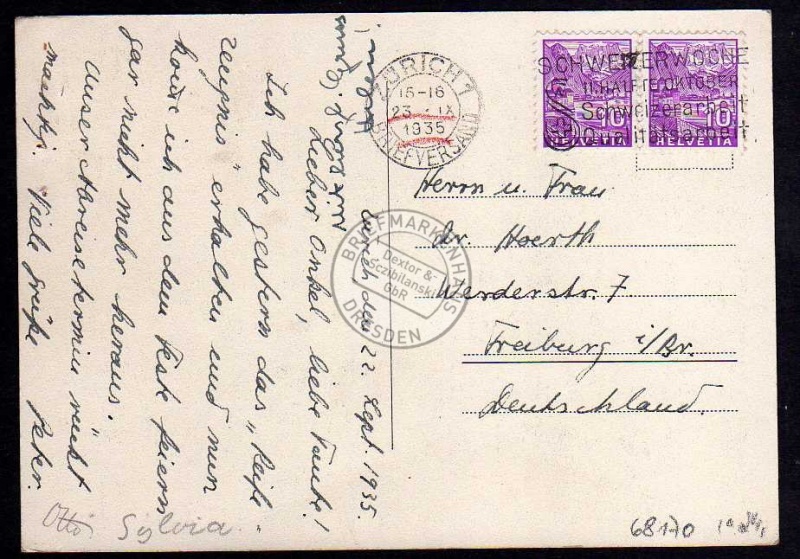 Zürich den 22. Sept. 1935.
Lieber Onkel, liebe Tante!
Ich habe gestern das „Reife-
zeugnis" erhalten und nun
komme ich aus dem Feste feiern
gar nicht mehr heraus.
Unser Abreisetermin rückt
mächtig
Viele Grüße Peter.
Otto Sylvia
ZÜRICH 1
15-16
23. IX
1935
BRIEFVERSAND
SCHWEIZERWOCHE
II. HÄLFTE OKTOBER
Schweizerarbeit
Qualitätsarbeit.
10 10
HELVETIA HELVETIA
Herrn u. Frau
Dr. Hoerth
Werderstr. 7
Freiburg i/Br.
Deutschland.
BRIEFMARKENHAUS
Dextor &
Sczibilanski
GbR
DRESDEN
68170